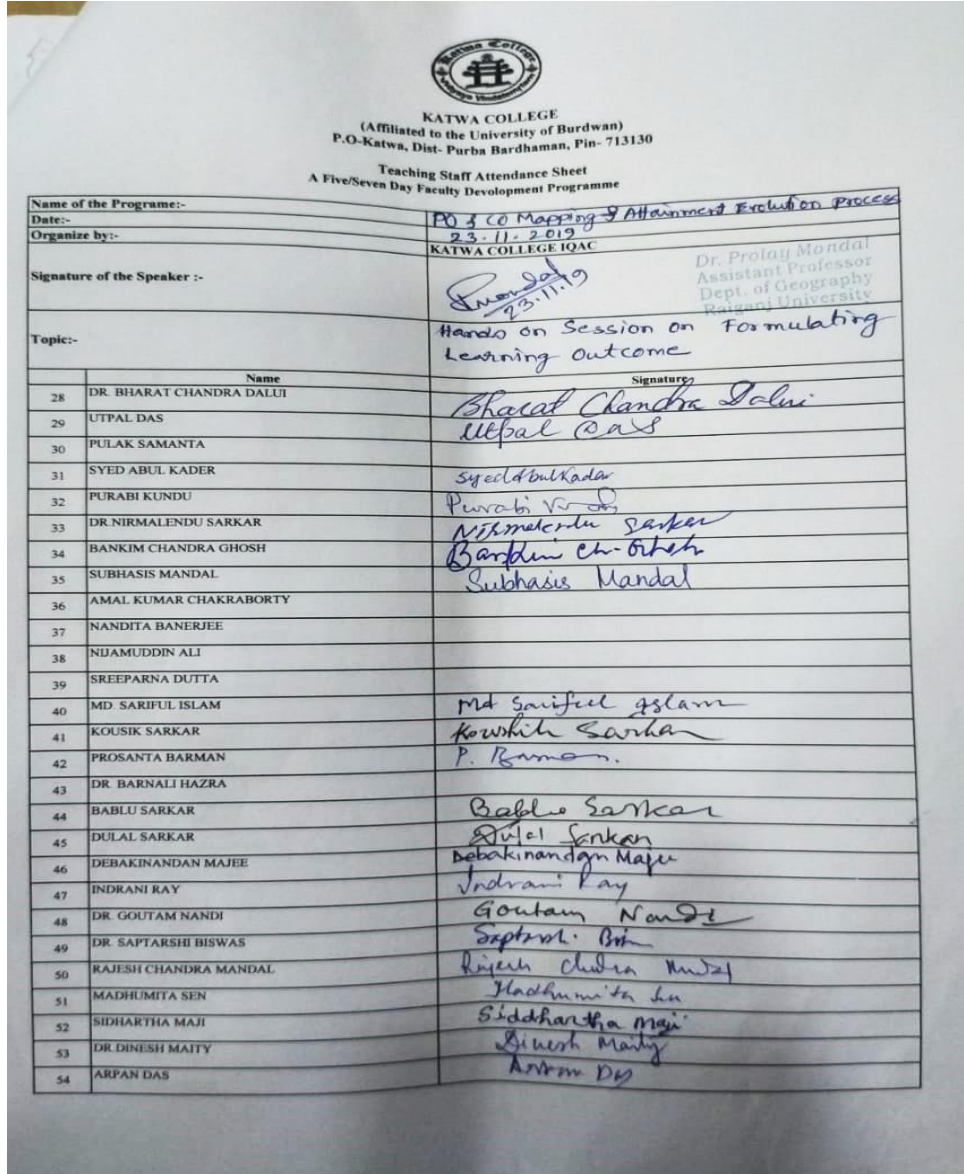 Katwa College
KATWA COLLEGE
(Affiliated to the University of Burdwan)
P.O-Katwa, Dist- Purba Bardhaman, Pin- 713130
Teaching Staff Attendance Sheet
A Five/Seven Day Faculty Devolopment Programme
Name of the Programe:- PO & CO Mapping & Attainment Evolution Process
Date:- 23-11-2019
Organize by:- KATWA COLLEGE IQAC
Signature of the Speaker :- Pmondal 23.11.19
Dr. Prolay Mondal
Assistant Professor
Dept. of Geography
Raiganj University
Topic:- Hands on Session on Formulating
Learning Outcome
Name Signature
28 DR. BHARAT CHANDRA DALUI Bharat Chandra Dalui
29 UTPAL DAS Utpal Das
30 PULAK SAMANTA
31 SYED ABUL KADER Syed Abul Kadar
32 PURABI KUNDU Purabi
33 DR.NIRMALENDU SARKAR Nirmalendu Sarkar
34 BANKIM CHANDRA GHOSH Bankim Ch. Ghosh
35 SUBHASIS MANDAL Subhasis Mandal
36 AMAL KUMAR CHAKRABORTY
37 NANDITA BANERJEE
38 NIJAMUDDIN ALI
39 SREEPARNA DUTTA
40 MD. SARIFUL ISLAM Md Sariful Islam
41 KOUSIK SARKAR Koushik Sarkar
42 PROSANTA BARMAN P. Barman.
43 DR. BARNALI HAZRA
44 BABLU SARKAR Bablu Sarkar
45 DULAL SARKAR Dulal Sarkar
46 DEBAKINANDAN MAJEE Debakinandan Majee
47 INDRANI RAY Indrani Ray
48 DR. GOUTAM NANDI Goutam Nandi
49 DR. SAPTARSHI BISWAS
50 RAJESH CHANDRA MANDAL Rajesh Chandra
51 MADHUMITA SEN Madhumita Sen
52 SIDHARTHA MAJI Siddhartha Maji
53 DR.DINESH MAITY Dinesh Maity
54 ARPAN DAS Arpan Das